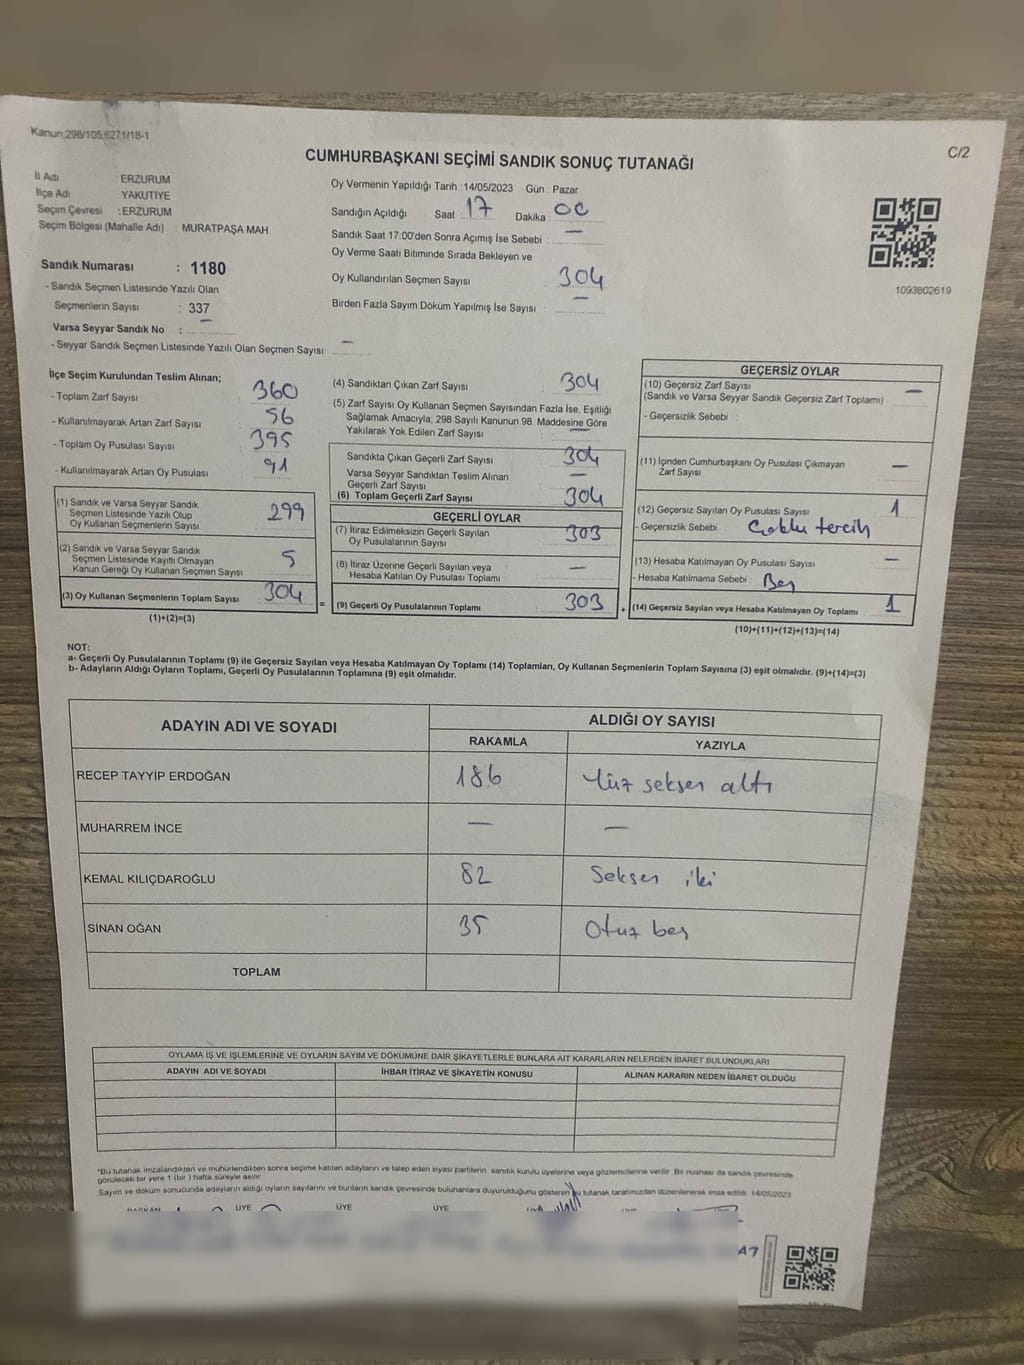 Kanun;298/105,6271/18-1
C/2
CUMHURBAŞKANI SEÇİMİ SANDIK SONUÇ TUTANAĞI
İl Adı : ERZURUM
İlçe Adı YAKUTİYE
Seçim Çevresi : ERZURUM
Seçim Bölgesi (Mahalle Adı) : MURATPAŞA MAH.
Sandık Numarası : 1180
- Sandık Seçmen Listesinde Yazılı Olan
Seçmenlerin Sayısı : 337
Varsa Seyyar Sandık No : —
- Seyyar Sandık Seçmen Listesinde Yazılı Olan Seçmen Sayısı: —
Oy Vermenin Yapıldığı Tarih :14/05/2023 Gün : Pazar
Sandığın Açıldığı Saat 17 Dakika : 00
Sandık Saat 17:00'den Sonra Açımış İse Sebebi : —
Oy Verme Saati Bitiminde Sırada Bekleyen ve
Oy Kullandırılan Seçmen Sayısı 304
Birden Fazla Sayım Döküm Yapılmış İse Sayısı : —
1093802619
İlçe Seçim Kurulundan Teslim Alınan;
- Toplam Zarf Sayısı 360
- Kullanılmayarak Artan Zarf Sayısı : 56
- Toplam Oy Pusulası Sayısı 395
- Kullanılmayarak Artan Oy Pusulası 91
(1) Sandık ve Varsa Seyyar Sandık
Seçmen Listesinde Yazılı Olup
Oy Kullanan Seçmenlerin Sayısı 299
(2) Sandık ve Varsa Seyyar Sandık
Seçmen Listesinde Kayıtlı Olmayan
Kanun Gereği Oy Kullanan Seçmen Sayısı 5
(3) Oy Kullanan Seçmenlerin Toplam Sayısı 304
(1)+(2)=(3)
=
(4) Sandıktan Çıkan Zarf Sayısı 304
(5) Zarf Sayısı Oy Kullanan Seçmen Sayısından Fazla İse, Eşitliği
Sağlamak Amacıyla; 298 Sayılı Kanunun 98. Maddesine Göre
Yakılarak Yok Edilen Zarf Sayısı : —
Sandıkta Çıkan Geçerli Zarf Sayısı 304
Varsa Seyyar Sandıktan Teslim Alınan
Geçerli Zarf Sayısı —
(6) Toplam Geçerli Zarf Sayısı 304
GEÇERLİ OYLAR
(7) İtiraz Edilmeksizin Geçerli Sayılan
Oy Pusulalarının Sayısı 303
(8) İtiraz Üzerine Geçerli Sayılan veya
Hesaba Katılan Oy Pusulası Toplamı —
(9) Geçerli Oy Pusulalarının Toplamı 303
+
GEÇERSİZ OYLAR
(10) Geçersiz Zarf Sayısı —
(Sandık ve Varsa Seyyar Sandık Geçersiz Zarf Toplamı)
- Geçersizlik Sebebi :
(11) İçinden Cumhurbaşkanı Oy Pusulası Çıkmayan
Zarf Sayısı —
(12) Geçersiz Sayılan Oy Pusulası Sayısı 1
- Geçersizlik Sebebi : Çoklu tercih
(13) Hesaba Katılmayan Oy Pusulası Sayısı —
- Hesaba Katılmama Sebebi : Beş
(14) Geçersiz Sayılan veya Hesaba Katılmayan Oy Toplamı 1
(10)+(11)+(12)+(13)=(14)
NOT:
a- Geçerli Oy Pusulalarının Toplamı (9) ile Geçersiz Sayılan veya Hesaba Katılmayan Oy Toplamı (14) Toplamları, Oy Kullanan Seçmenlerin Toplam Sayısına (3) eşit olmalıdır. (9)+(14)=(3)
b- Adayların Aldığı Oyların Toplamı, Geçerli Oy Pusulalarının Toplamına (9) eşit olmalıdır.
ADAYIN ADI VE SOYADI ALDIĞI OY SAYISI
RAKAMLA YAZIYLA
RECEP TAYYİP ERDOĞAN 186 Yüz seksen altı
MUHARREM İNCE — —
KEMAL KILIÇDAROĞLU 82 Seksen iki
SİNAN OĞAN 35 Otuz beş
TOPLAM
OYLAMA İŞ VE İŞLEMLERİNE VE OYLARIN SAYIM VE DÖKÜMÜNE DAİR ŞİKAYETLERLE BUNLARA AİT KARARLARIN NELERDEN İBARET BULUNDUKLARI
ADAYIN ADI VE SOYADI İHBAR İTİRAZ VE ŞİKAYETİN KONUSU ALINAN KARARIN NEDEN İBARET OLDUĞU
*Bu tutanak imzalandıktan ve mühürlendikten sonra seçime katılan adayların ve talep eden siyasi partilerin sandık kurulu üyelerine veya gözlemcilerine verilir. Bir nüshası da sandık çevresinde
görülecek bir yere 1 (bir) hafta süreyle asılır.
Sayım ve döküm sonucunda adayların aldığı oyların sayılarını ve bunların sandık çevresinde bulunanlara duyurulduğunu gösteren bu tutanak tarafımızdan düzenlenerek imza edildi. 14/05/2023
BAŞKAN ÜYE ÜYE ÜYE
A7